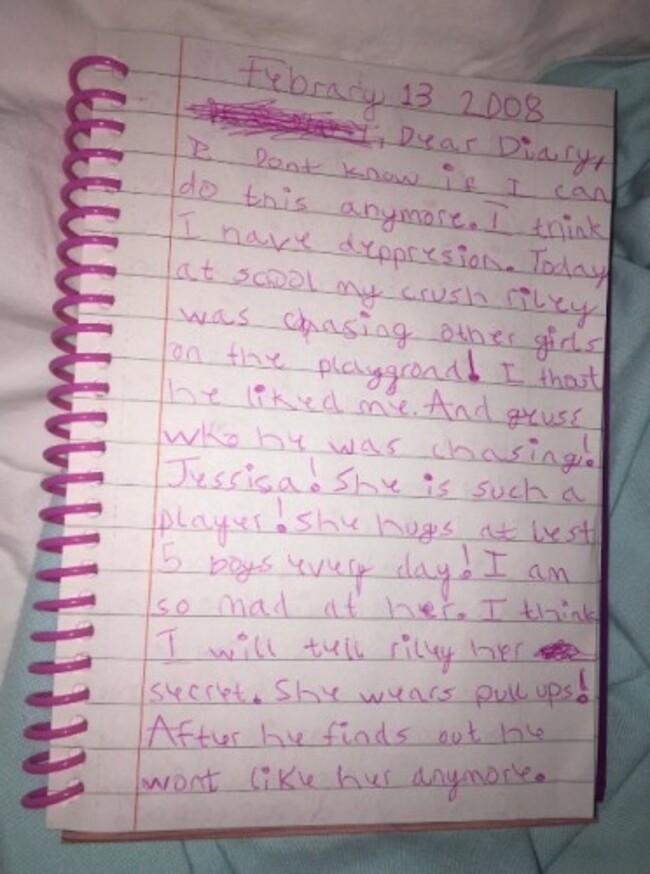 Febrary 13 2008
Dear Diary,
I Dont know if I can
do this anymore. I think
I have deppresion. Today
at scool my crush riley
was chasing other girls
on the playgrond! I thost
he liked me. And guess
who he was chasing!
Jessisa! She is such a
player! She hugs at lest
5 boys every day! I am
so mad at her. I think
I will tell riley her
secret. She wears pull ups!
After he finds out he
wont like her anymore.